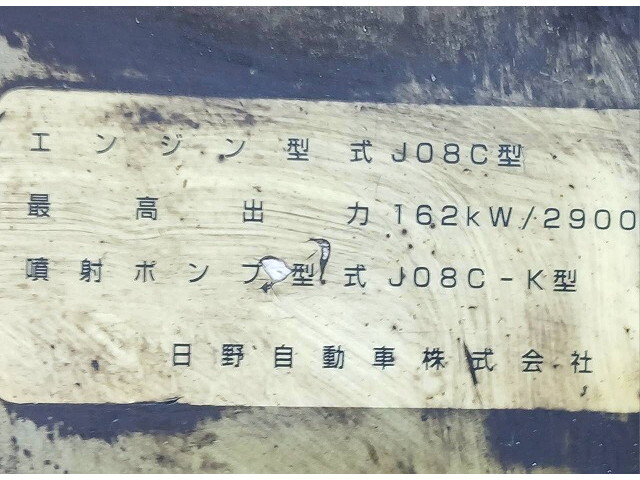 エンジン型式 J08C型
最高出力 162kW/2900
噴射ポンプ型式 J08C-K型
日野自動車株式会社